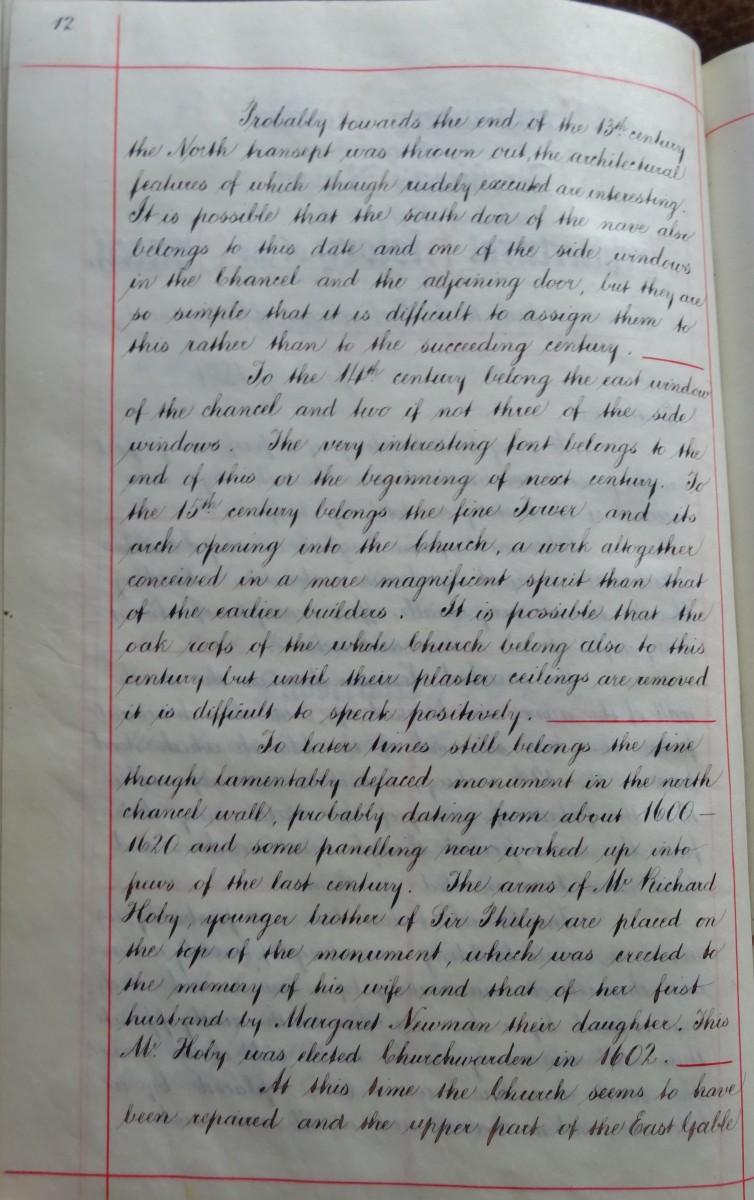 12
Probably towards the end of the 13th century
the North transept was thrown out, the architectural
features of which though rudely executed are interesting.
It is possible that the south door of the nave also
belongs to this date and one of the side windows
in the Chancel and the adjoining door, but they are
so simple that it is difficult to assign them to
this rather than to the succeeding century.
To the 14th century belong the east window
of the chancel and two if not three of the side
windows. The very interesting font belongs to the
end of this or the beginning of next century. To
the 15th century belongs the fine Tower and its
arch opening into the Church, a work altogether
conceived in a more magnificent spirit than that
of the earlier builders. It is possible that the
oak roofs of the whole Church belong also to this
century but until their plaster ceilings are removed
it is difficult to speak positively.
To later times still belongs the fine
though lamentably defaced monument in the north
chancel wall, probably dating from about 1600–
1620 and some panelling now worked up into
pews of the last century. The arms of Mr. Richard
Hoby, younger brother of Sir Philip are placed on
the top of the monument, which was erected to
the memory of his wife and that of her first
husband by Margaret Newman their daughter. This
Mr. Hoby was elected Churchwarden in 1602.
At this time the Church seems to have
been repaired and the upper part of the East Gable